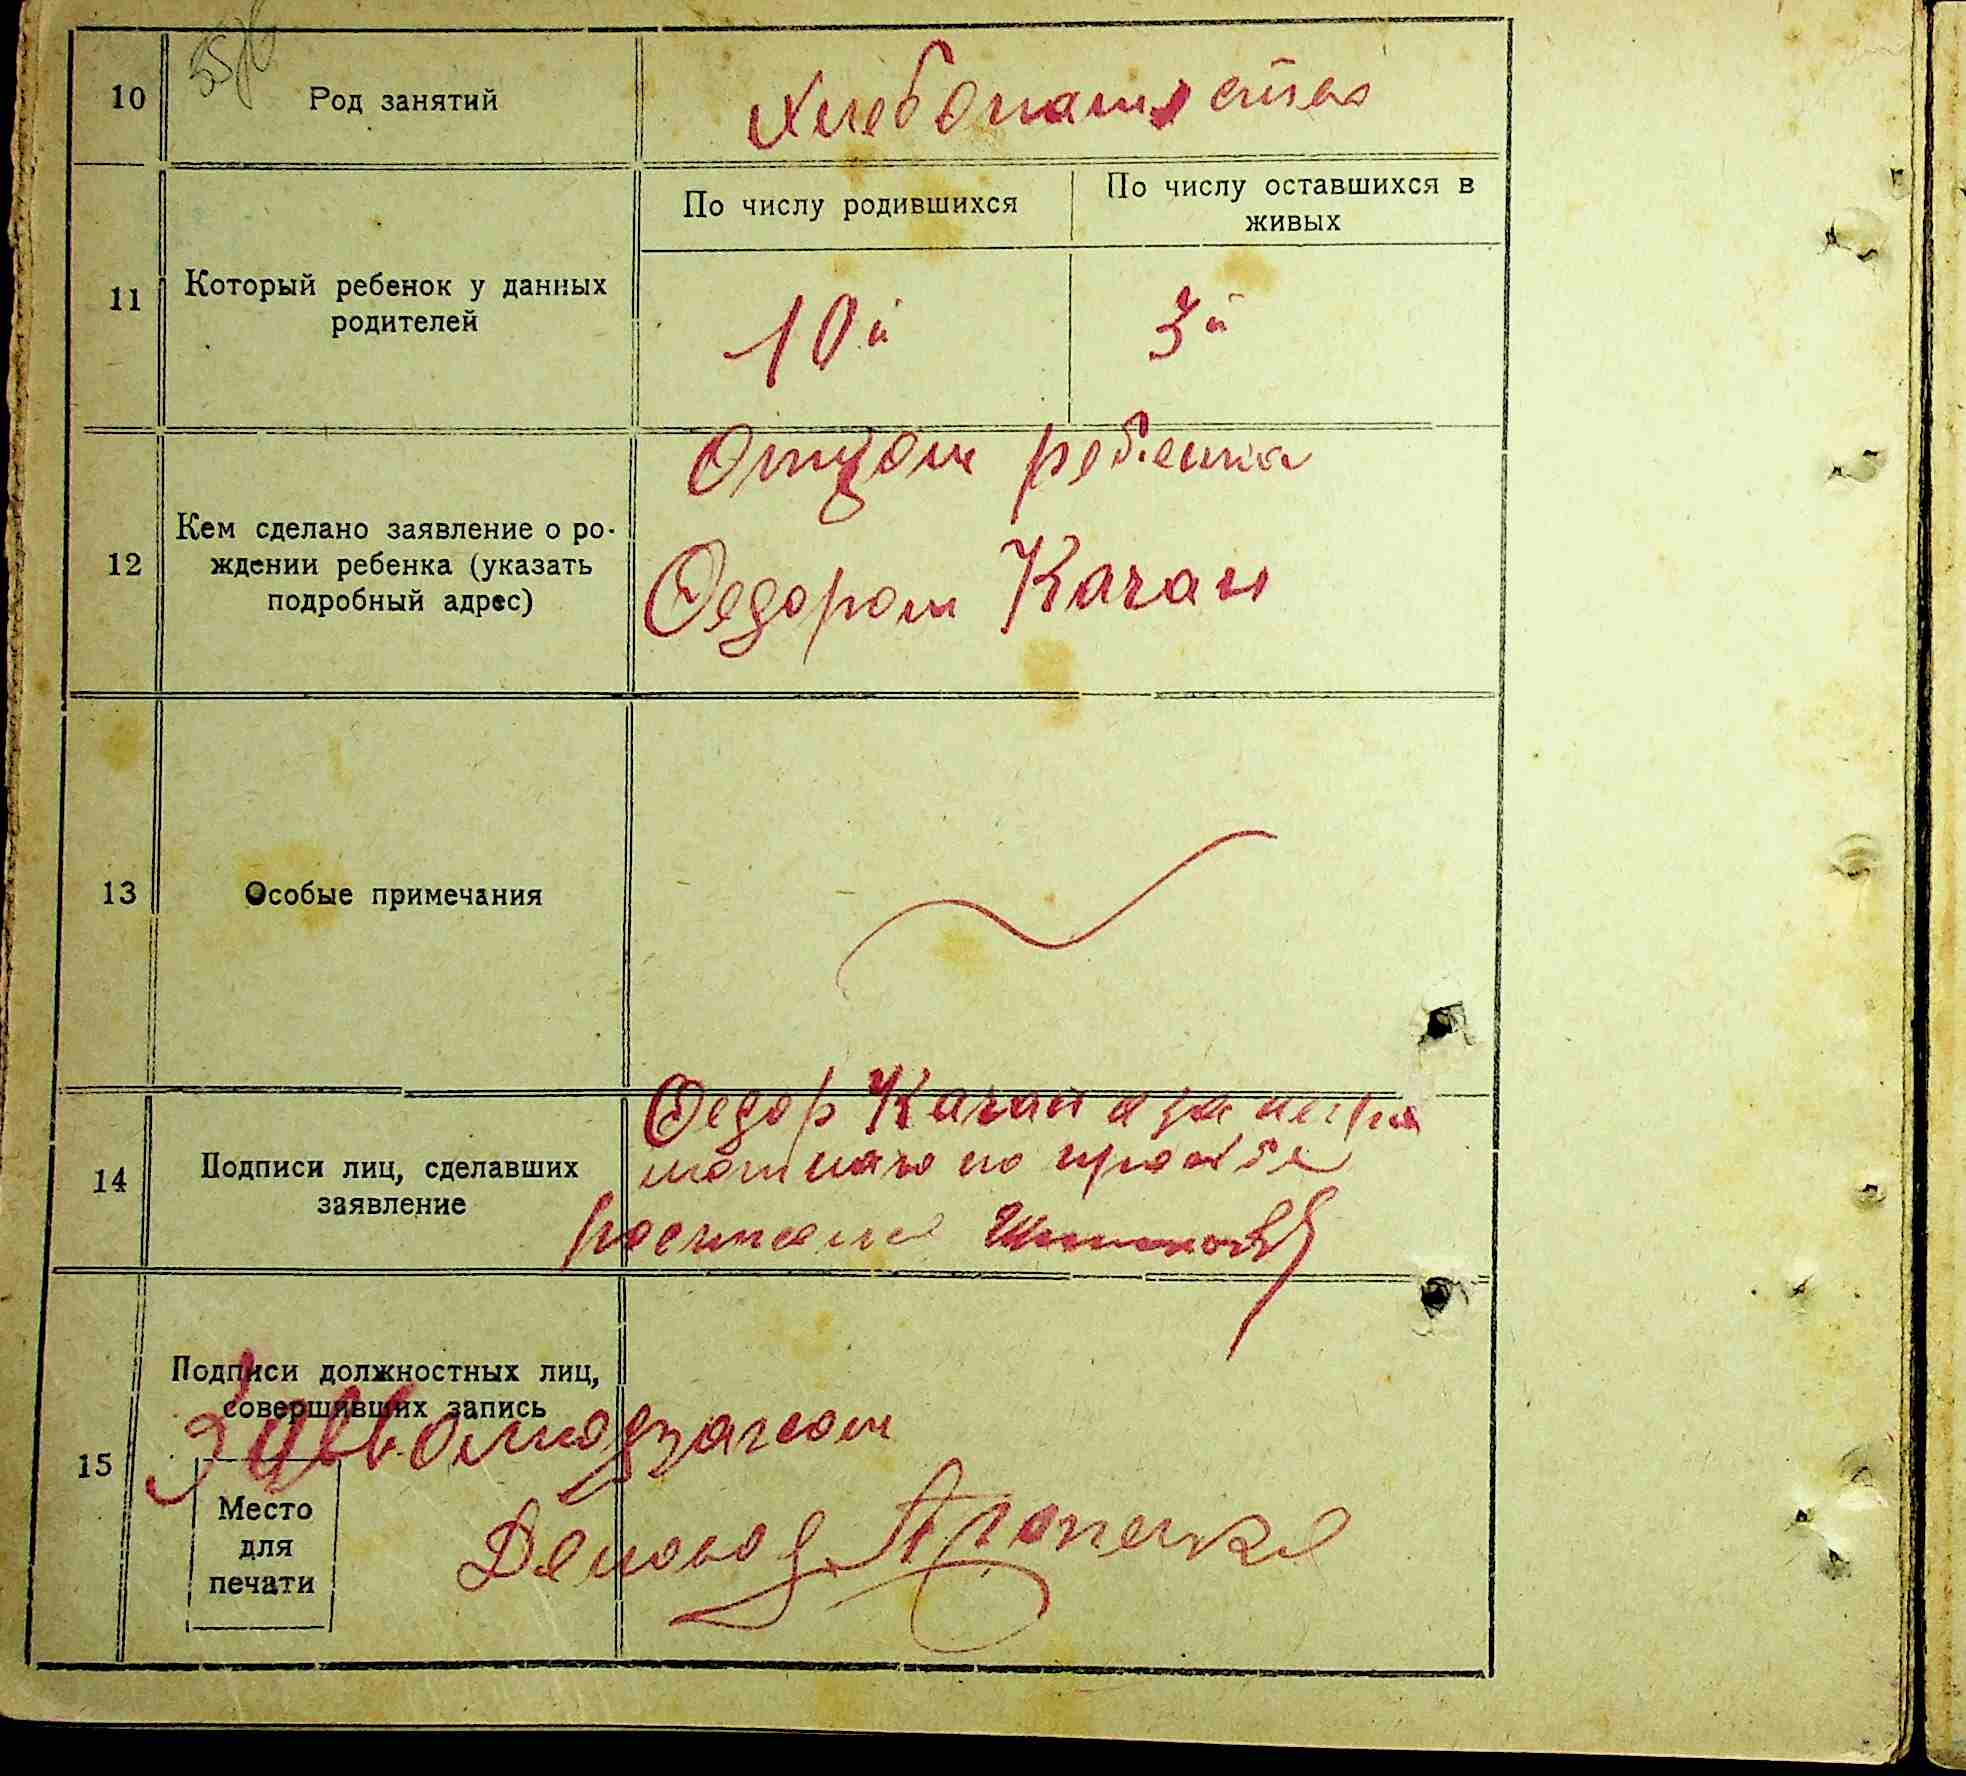 10
Род занятий
Хлебопашество
11
Который ребенок у данных
родителей
По числу родившихся
По числу оставшихся в
живых
10й
3й
12
Кем сделано заявление о ро-
ждении ребенка (указать
подробный адрес)
Отцом ребенка
Федором Качан
13
Особые примечания
14
Подписи лиц, сделавших
заявление
Федор Качан а за негра
мотного по просьбе
расписался
15
Подписи должностных лиц,
совершивших запись
Завволподзагсом
Место
для
печати
Деловод